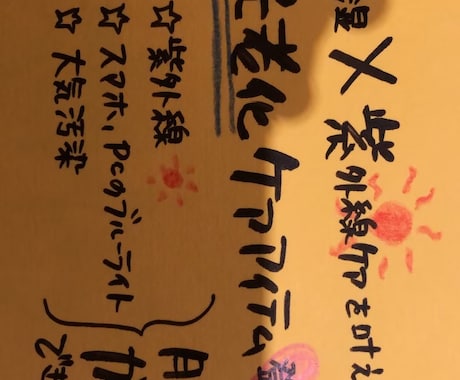 湿×紫外線ケアを叶え
老化ケアアイテム
☆紫外線
☆スマホ、PCのブルーライト
☆大気汚染